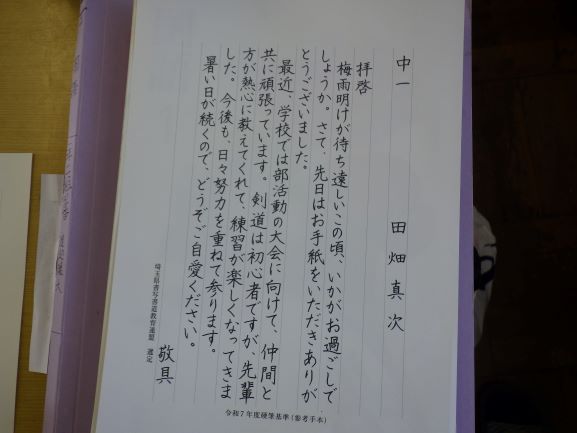 中一　田畑真次
拝啓
梅雨明けが待ち遠しいこの頃、いかがお過ごしで
しょうか。さて、先日はお手紙をいただきありが
とうございました。
最近、学校では部活動の大会に向けて、仲間と
共に頑張っています。剣道は初心者ですが、先輩
方が熱心に教えてくれて、練習が楽しくなってきま
した。今後も、日々努力を重ねて参ります。
暑い日が続くので、どうぞご自愛ください。
敬具
埼玉県書写書道教育連盟 選定
令和7年度硬筆基準（参考手本）